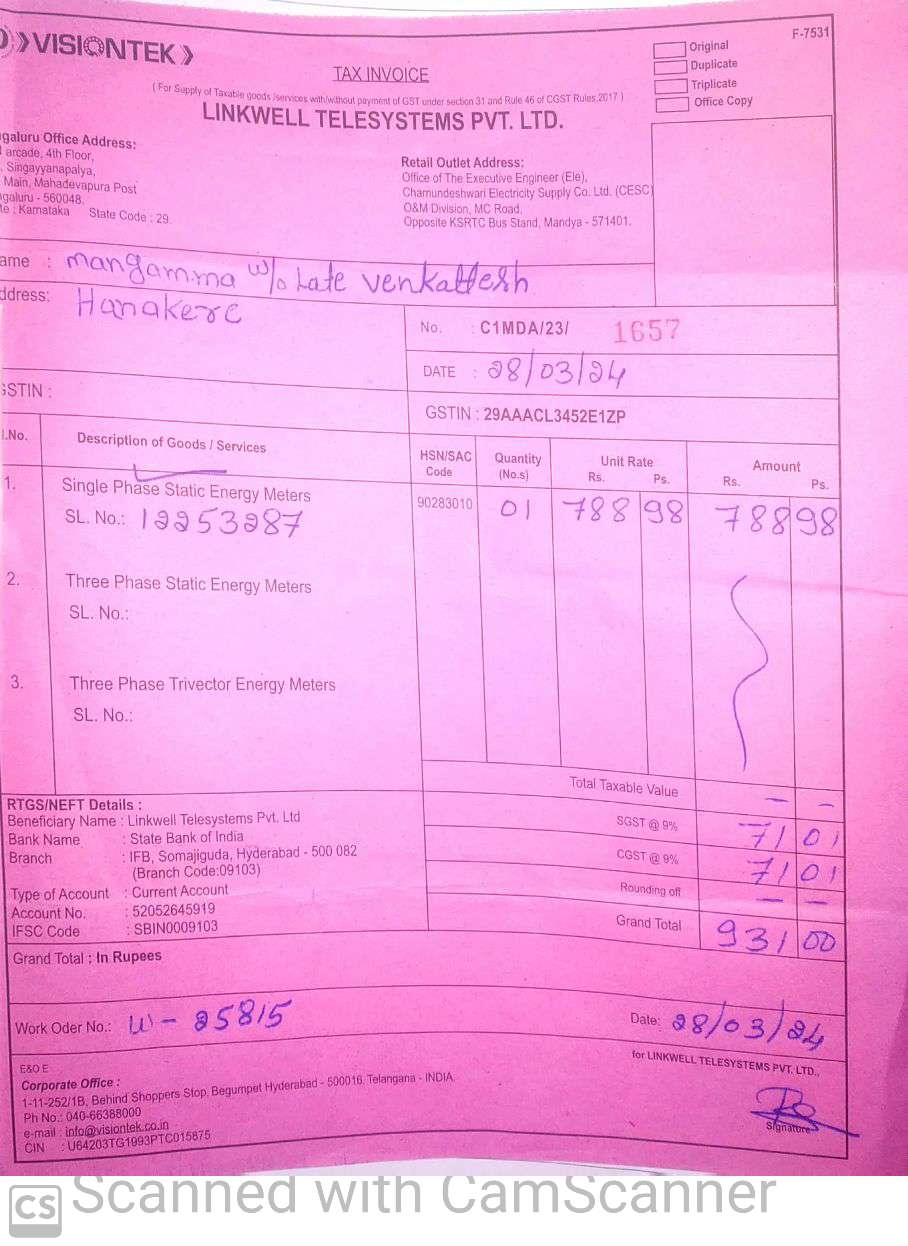 VISIONTEK
F-7531
TAX INVOICE
Original
Duplicate
Triplicate
Office Copy
( For Supply of Taxable goods /services with/without payment of GST under section 31 and Rule 46 of CGST Rules,2017 )
LINKWELL TELESYSTEMS PVT. LTD.
galuru Office Address:
arcade, 4th Floor,
Singayyanapalya,
Main, Mahadevapura Post
galuru - 560048.
te : Karnataka State Code : 29.
Retail Outlet Address:
Office of The Executive Engineer (Ele),
Chamundeshwari Electricity Supply Co. Ltd. (CESC)
O&M Division, MC Road,
Opposite KSRTC Bus Stand, Mandya - 571401.
ame : mangamma w/o Late venkattesh
ddress: Hanakere
No. : C1MDA/23/ 1657
DATE : 28/03/24
GSTIN :
GSTIN : 29AAACL3452E1ZP
l.No. Description of Goods / Services HSN/SAC Code Quantity (No.s) Unit Rate Rs. Ps. Amount Rs. Ps.
1. Single Phase Static Energy Meters 90283010 01 788 98 788 98
SL. No.: 12253287
2. Three Phase Static Energy Meters
SL. No.:
3. Three Phase Trivector Energy Meters
SL. No.:
Total Taxable Value - -
SGST @ 9% 71 01
CGST @ 9% 71 01
Rounding off - -
Grand Total 931 00
RTGS/NEFT Details :
Beneficiary Name : Linkwell Telesystems Pvt. Ltd
Bank Name : State Bank of India
Branch : IFB, Somajiguda, Hyderabad - 500 082
(Branch Code:09103)
Type of Account : Current Account
Account No. : 52052645919
IFSC Code : SBIN0009103
Grand Total : In Rupees
Work Oder No.: W - 25815
Date: 28/03/24
for LINKWELL TELESYSTEMS PVT. LTD.,
Signature
E&O E
Corporate Office :
1-11-252/1B, Behind Shoppers Stop, Begumpet Hyderabad - 500016. Telangana - INDIA.
Ph No.: 040-66388000
e-mail : info@visiontek.co.in
CIN : U64203TG1993PTC015875
CS Scanned with CamScanner